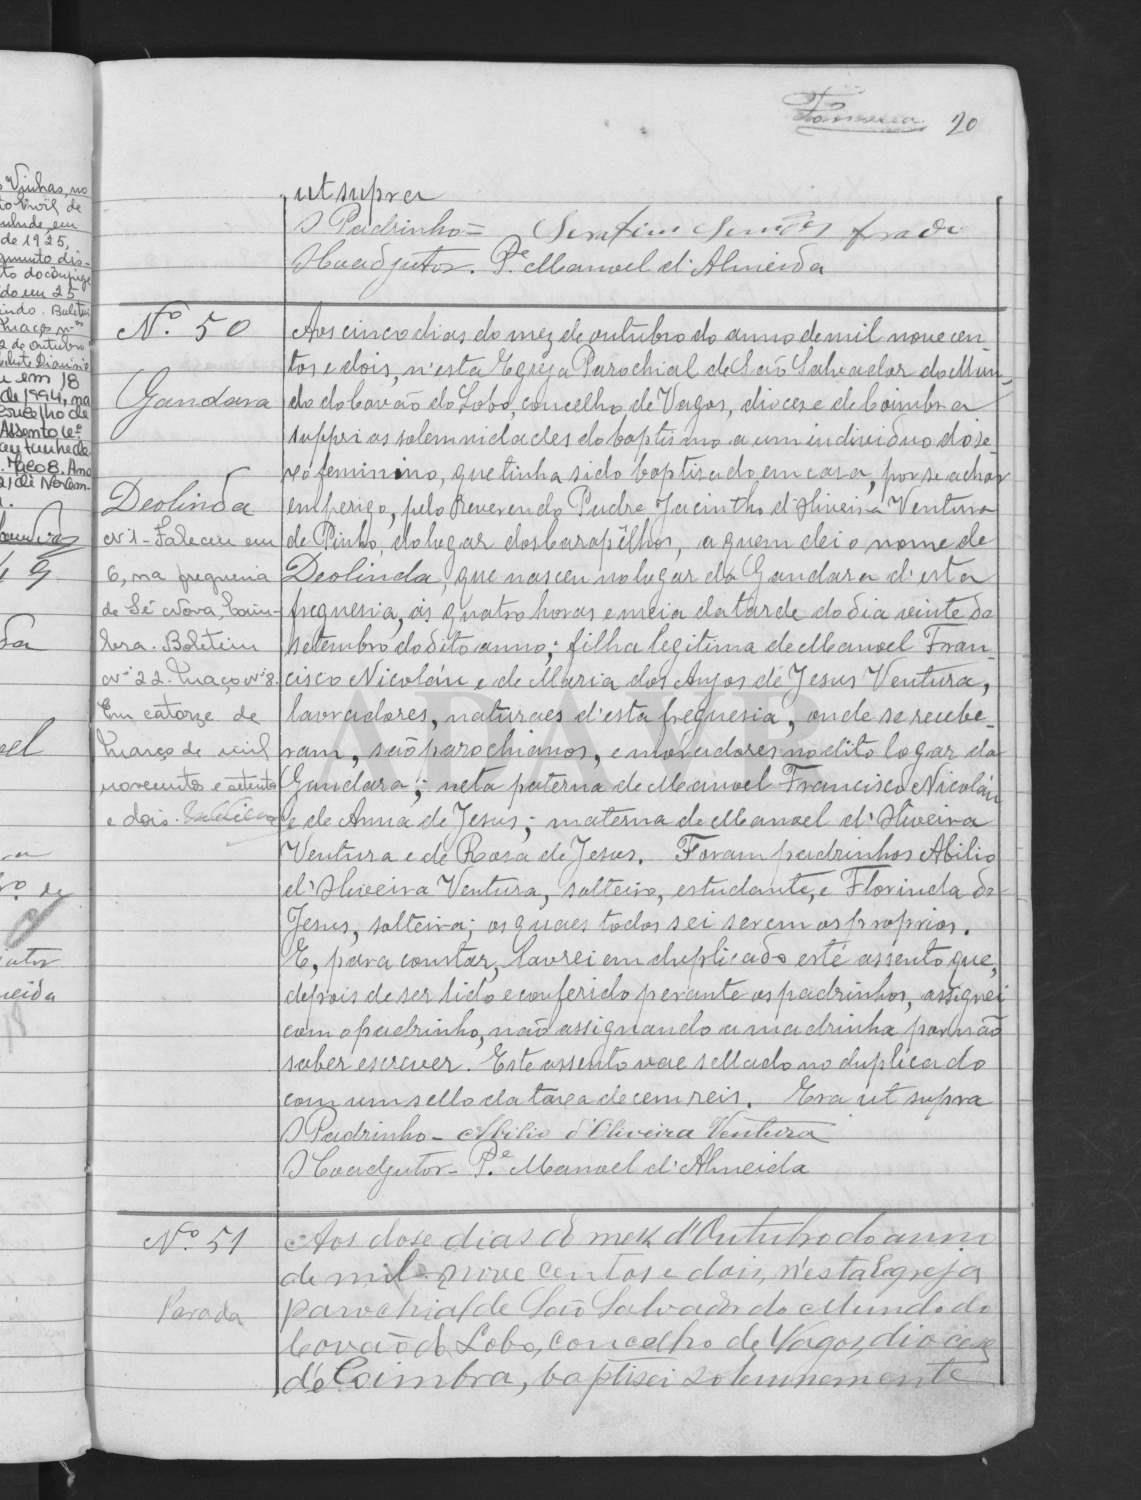 Fonseca 20
ut supra
O Padrinho = Serafim Simões frade
O Coadjutor. P.e Manoel d'Almeida
N.o 50
Gandara
Deolinda
N 1 - Faleceu em
6, na freguesia
de Sé Nova, Coim-
bra. Boletim
N.o 22. Maço N.o 8.
Em catorze de
Março de mil
novecentos e setenta
e dois.
Aos cinco dias do mez de outubro do anno de mil nove cen-
tos e dois, n'esta Egreja Parochial de São Salvador do Mun-
do do Covão do Lobo, concelho de Vagos, diocese de Coimbra
suppri as solemnidades do baptismo a um individuo do se-
xo feminino, que tinha sido baptisado em casa, por se achar
em perigo, pelo Reverendo Padre Jacintho d'Oliveira Ventura
de Pinho, do lugar dos Carapêlhos, a quem dei o nome de
Deolinda, que nasceu no lugar da Gandara d'esta
freguesia, ás quatro horas e meia da tarde do dia vinte de
setembro do dito anno; filha legitima de Manoel Fran-
cisco Nicoláu e de Maria dos Anjos de Jesus Ventura,
lavradores, naturaes d'esta freguesia, onde se recebe-
ram, são parochianos, e moradores no dito logar da
Gandara; neta paterna de Manoel Francisco Nicoláu
e de Anna de Jesus; materna de Manoel d'Oliveira
Ventura e de Rosa de Jesus. Foram padrinhos Abilio
d'Oliveira Ventura, solteiro, estudante, e Florinda de
Jesus, solteira; os quaes todos sei serem os proprios.
E, para constar, lavrei em duplicado este assento que,
depois de ser lido e conferido perante os padrinhos, assignei
com o padrinho, não assignando a madrinha por não
saber escrever. Este assento vae sellado no duplicado
com um sello da taxa de cem reis. Era ut supra
O Padrinho - Abilio d'Oliveira Ventura
O Coadjutor - P.e Manoel d'Almeida
N.o 51
Parada
Aos dose dias do mez d'Outubro do anno
de mil nove centos e dois, n'esta Egreja
parochial de São Salvador do Mundo do
Covão do Lobo, concelho de Vagos, diocese
de Coimbra, baptisei solemnemente
ADAVR